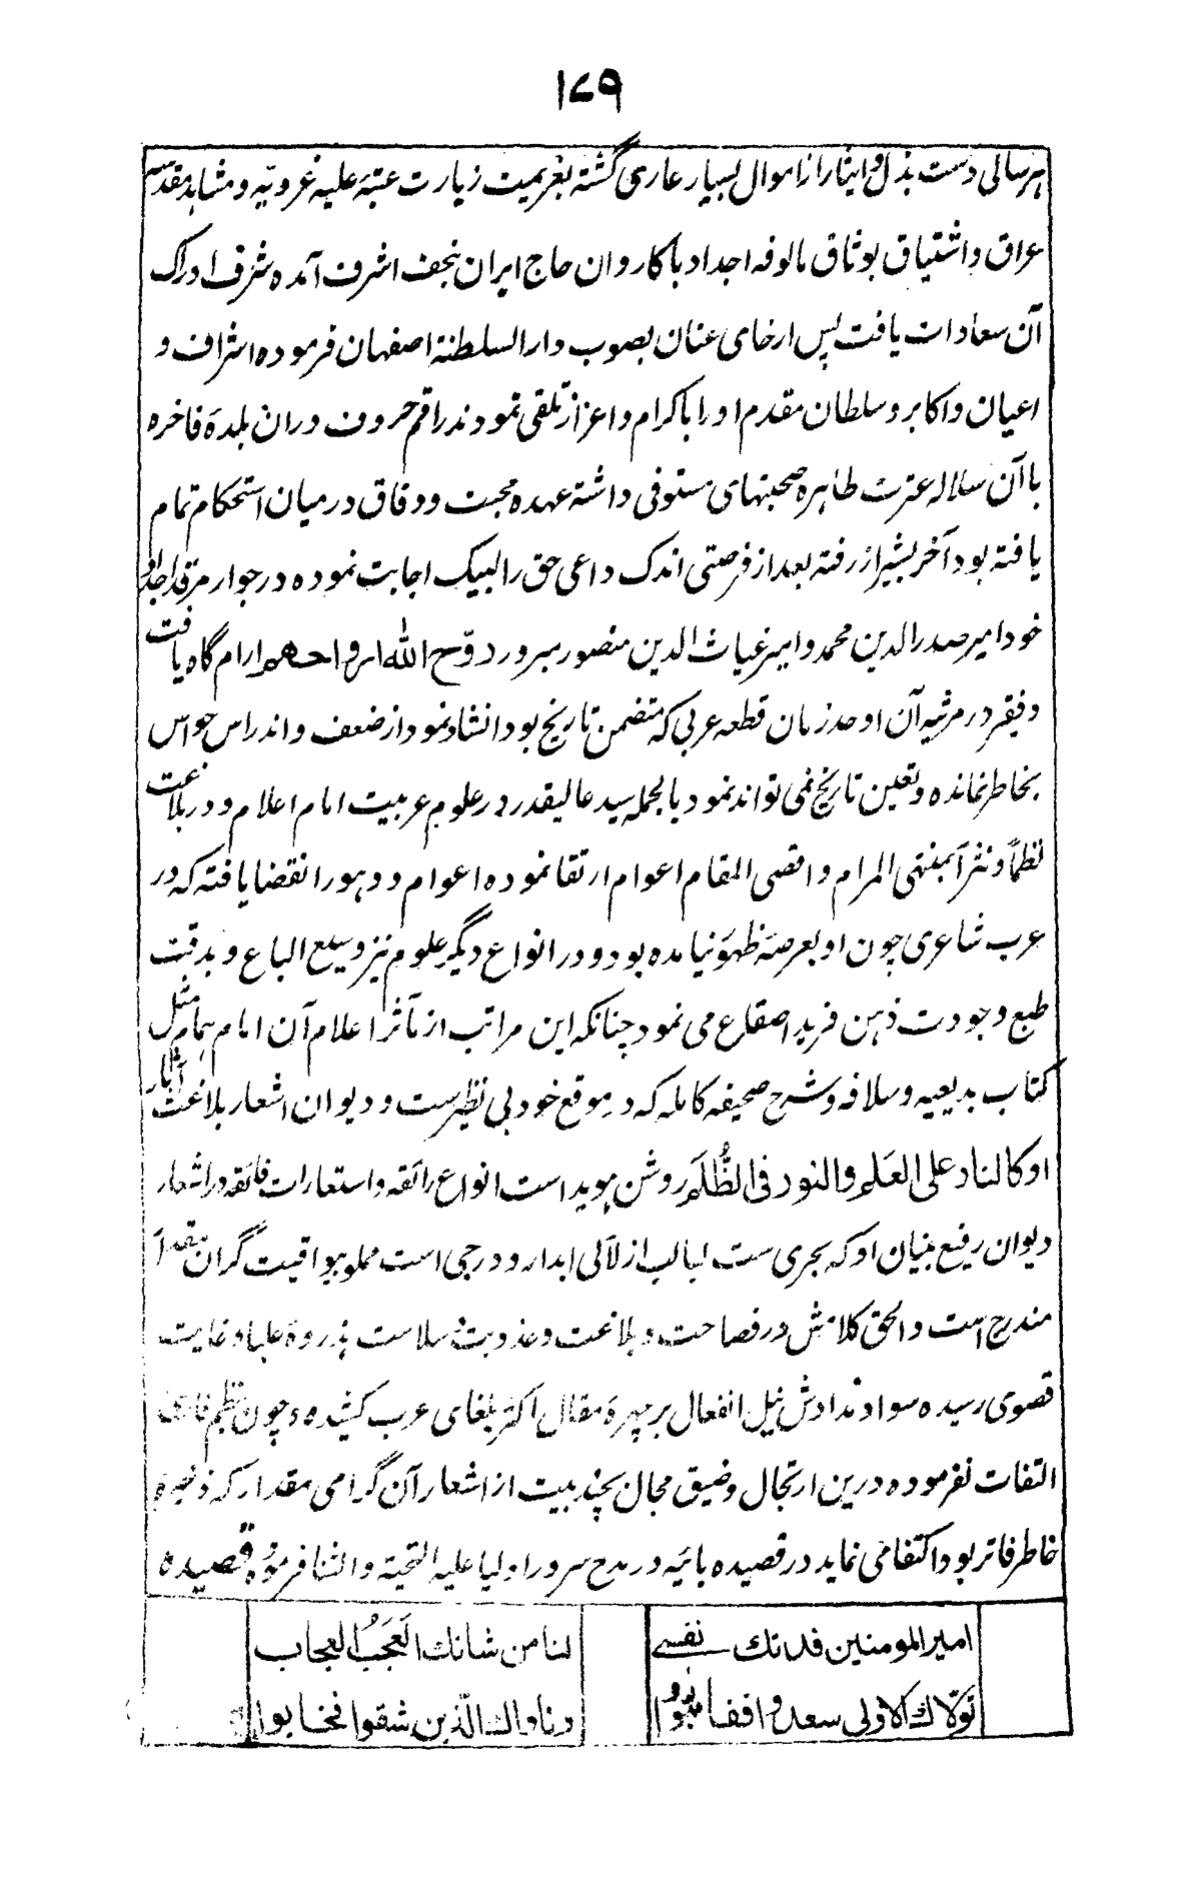 ۱۷۹
هر سالی دست بذل و ایثار از اموال بسیار عاری گشته بعزیمت زیارت عتبه علیه غرویه و مشاهد مقدسه
عراق و اشتیاق بوثاق مالوفه اجداد با کاروان حاج ایران بنجف اشرف آمده شرف ادراک
آن سعادات یافت پس ارخای عنان بصوب دار السلطنة اصفهان فرموده اشراف و
اعیان و اکابر و سلطان مقدم او را باکرام و اعزاز تلقی نمودند راقم حروف دران بلدهٔ فاخره
با آن سلاله عترت طاهره صحبتهای مستوفی داشته عهده محبت و وفاق درمیان استحکام تمام
یافته بود آخر بشیراز رفته بعد از فرصتی اندک داعی حق را لبیک اجابت نموده در جوار مرقد اجداد
خود امیر صدر الدین محمد و امیر غیاث الدین منصور سرور دروّح الله ارواحهم ارام گاه یافت
و فقیر در مرثیه آن اوحد زمان قطعه عربی که متضمن تاریخ بود انشاد نمود از ضعف و اندراس حواس
بخاطر نمانده و تعین تاریخ نمی تواند نمود بالجمله سید عالیقدر در علوم عربیت امام اعلام و در بلاغت
نظماً و نثراً بمنتهی المرام و اقصی المقام اعوام ارتقا نموده اعوام و دهورا انقضا یافته که در
عرب شاعری چون او بعرصهٔ ظهور نیامده بود و در انواع دیگر علوم نیز وسیع الباع و بدقت
طبع و جودت ذهن فرید اصقاع می نمود چنانکه این مراتب از مآثر اعلام آن امام همام مثل
کتاب بدیعیه و سلافه و شرح صحیفه کامله که در موقع خود بی نظیرست و دیوان اشعار بلاغت آثار
او کالنار علی العَلَم والنور فی الظُّلَم روشن هویداست انواع رائقه و استعارات فائقه در اشعار
دیوان رفیع بنیان او که بحری ست لبالب از لآلی ابدار و درجی است مملو بیواقیت گران مقدار
مندرج است و الحق کلامش در فصاحت و بلاغت و عذوبت سلاست بذروهٔ علیا و غایت
قصوی رسیده سواد مدادش نیل انفعال بر چهرهٔ مقال اکثر بلغای عرب کشیده و چون بنظم فارسی
التفات نفرموده درین ارتجال و ضیق مجال بچند بیت از اشعار آن گرامی مقدار که ذخیرهٔ
خاطر فاتر بود اکتفا می نماید در قصیده بائیه در مدح سرور اولیا علیه التحیة والثنا فرموده قصیده
امیر المومنین فدتك نفسے لنا من شانك العَجَبُ العجاب
تولّاك الاولی سعدوا ففازوا وناواك الذین شقوا فخابوا